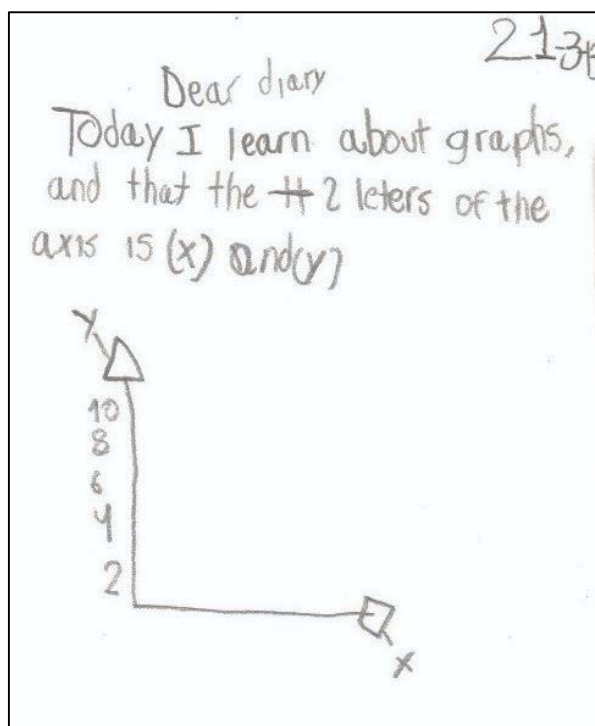 Dear diary
Today I learn about graphs,
and that the 2 leters of the
axis is (x) and(y)
y
10
8
6
4
2
x